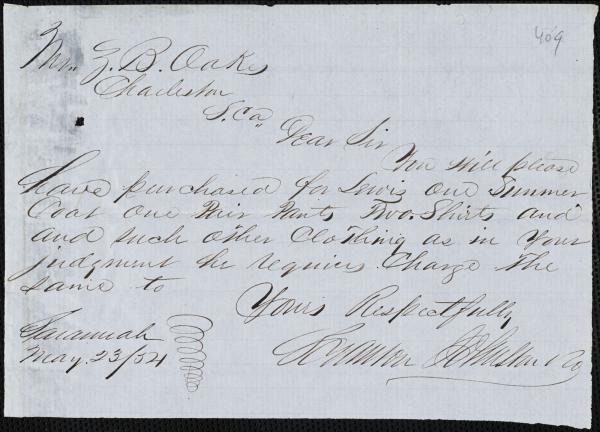 409
Mr. Z. B. Oakes
Charleston
S. Ca
Dear Sir
You will please
have purchased for Lewis one Summer
Coat one Pair Pants Two Shirts and
and such other Clothing as in your
judgment he requires Charge the
same to
Yours Respectfully
Savannah
May 23/54
Johnston &co